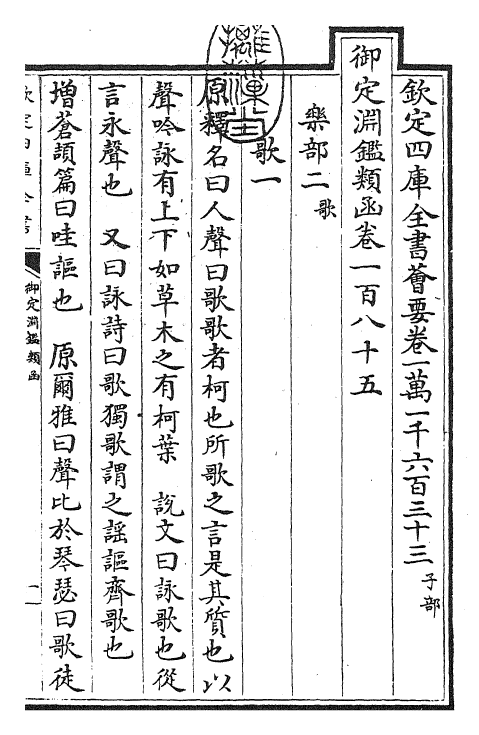 欽定四庫全書薈要卷一萬一千六百三十三 子部
御定淵鑑類函卷一百八十五
樂部二 歌
歌一
原釋名曰人聲曰歌歌者柯也所歌之言是其質也以
聲吟詠有上下如草木之有柯葉 說文曰詠歌也從
言永聲也 又曰詠詩曰歌獨歌謂之謡謳齊歌也
増蒼頡篇曰哇謳也 原爾雅曰聲比於琴瑟曰歌徒
御定淵鑑類函
一